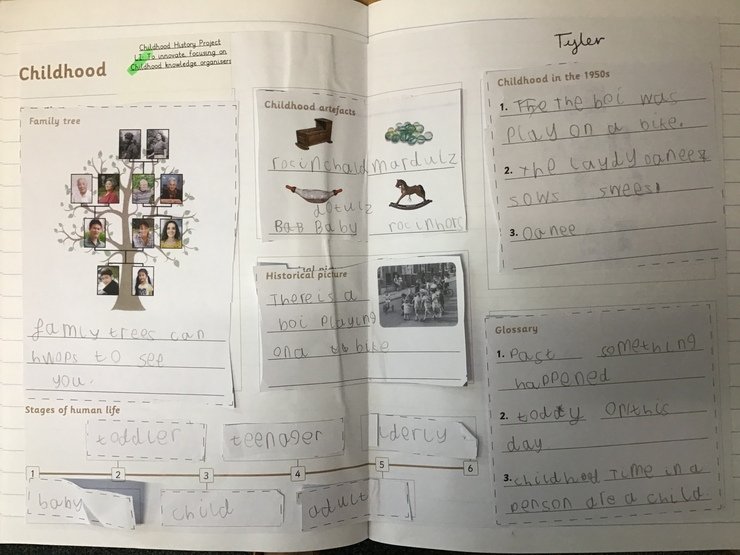 Childhood
Childhood History Project
LI. To innovate focusing on
Childhood knowledge organisers
Family tree
family trees can
hwops to see
you.
Childhood artefacts
rocinchald
mardulz
dotulz
Baby
rocinhorc
Historical picture
There is a
boi playing
on a bike
Stages of human life
toddler
teenager
lderly
1
2
3
4
5
6
baby
child
adult
Tyler
Childhood in the 1950s
1. The the boi was
play on a bike.
2. the laydy oanee
sows sweesi
3. oanee
Glossary
1. Past something
happened
2. today on this
day
3. childhood Time in a
person are a child.